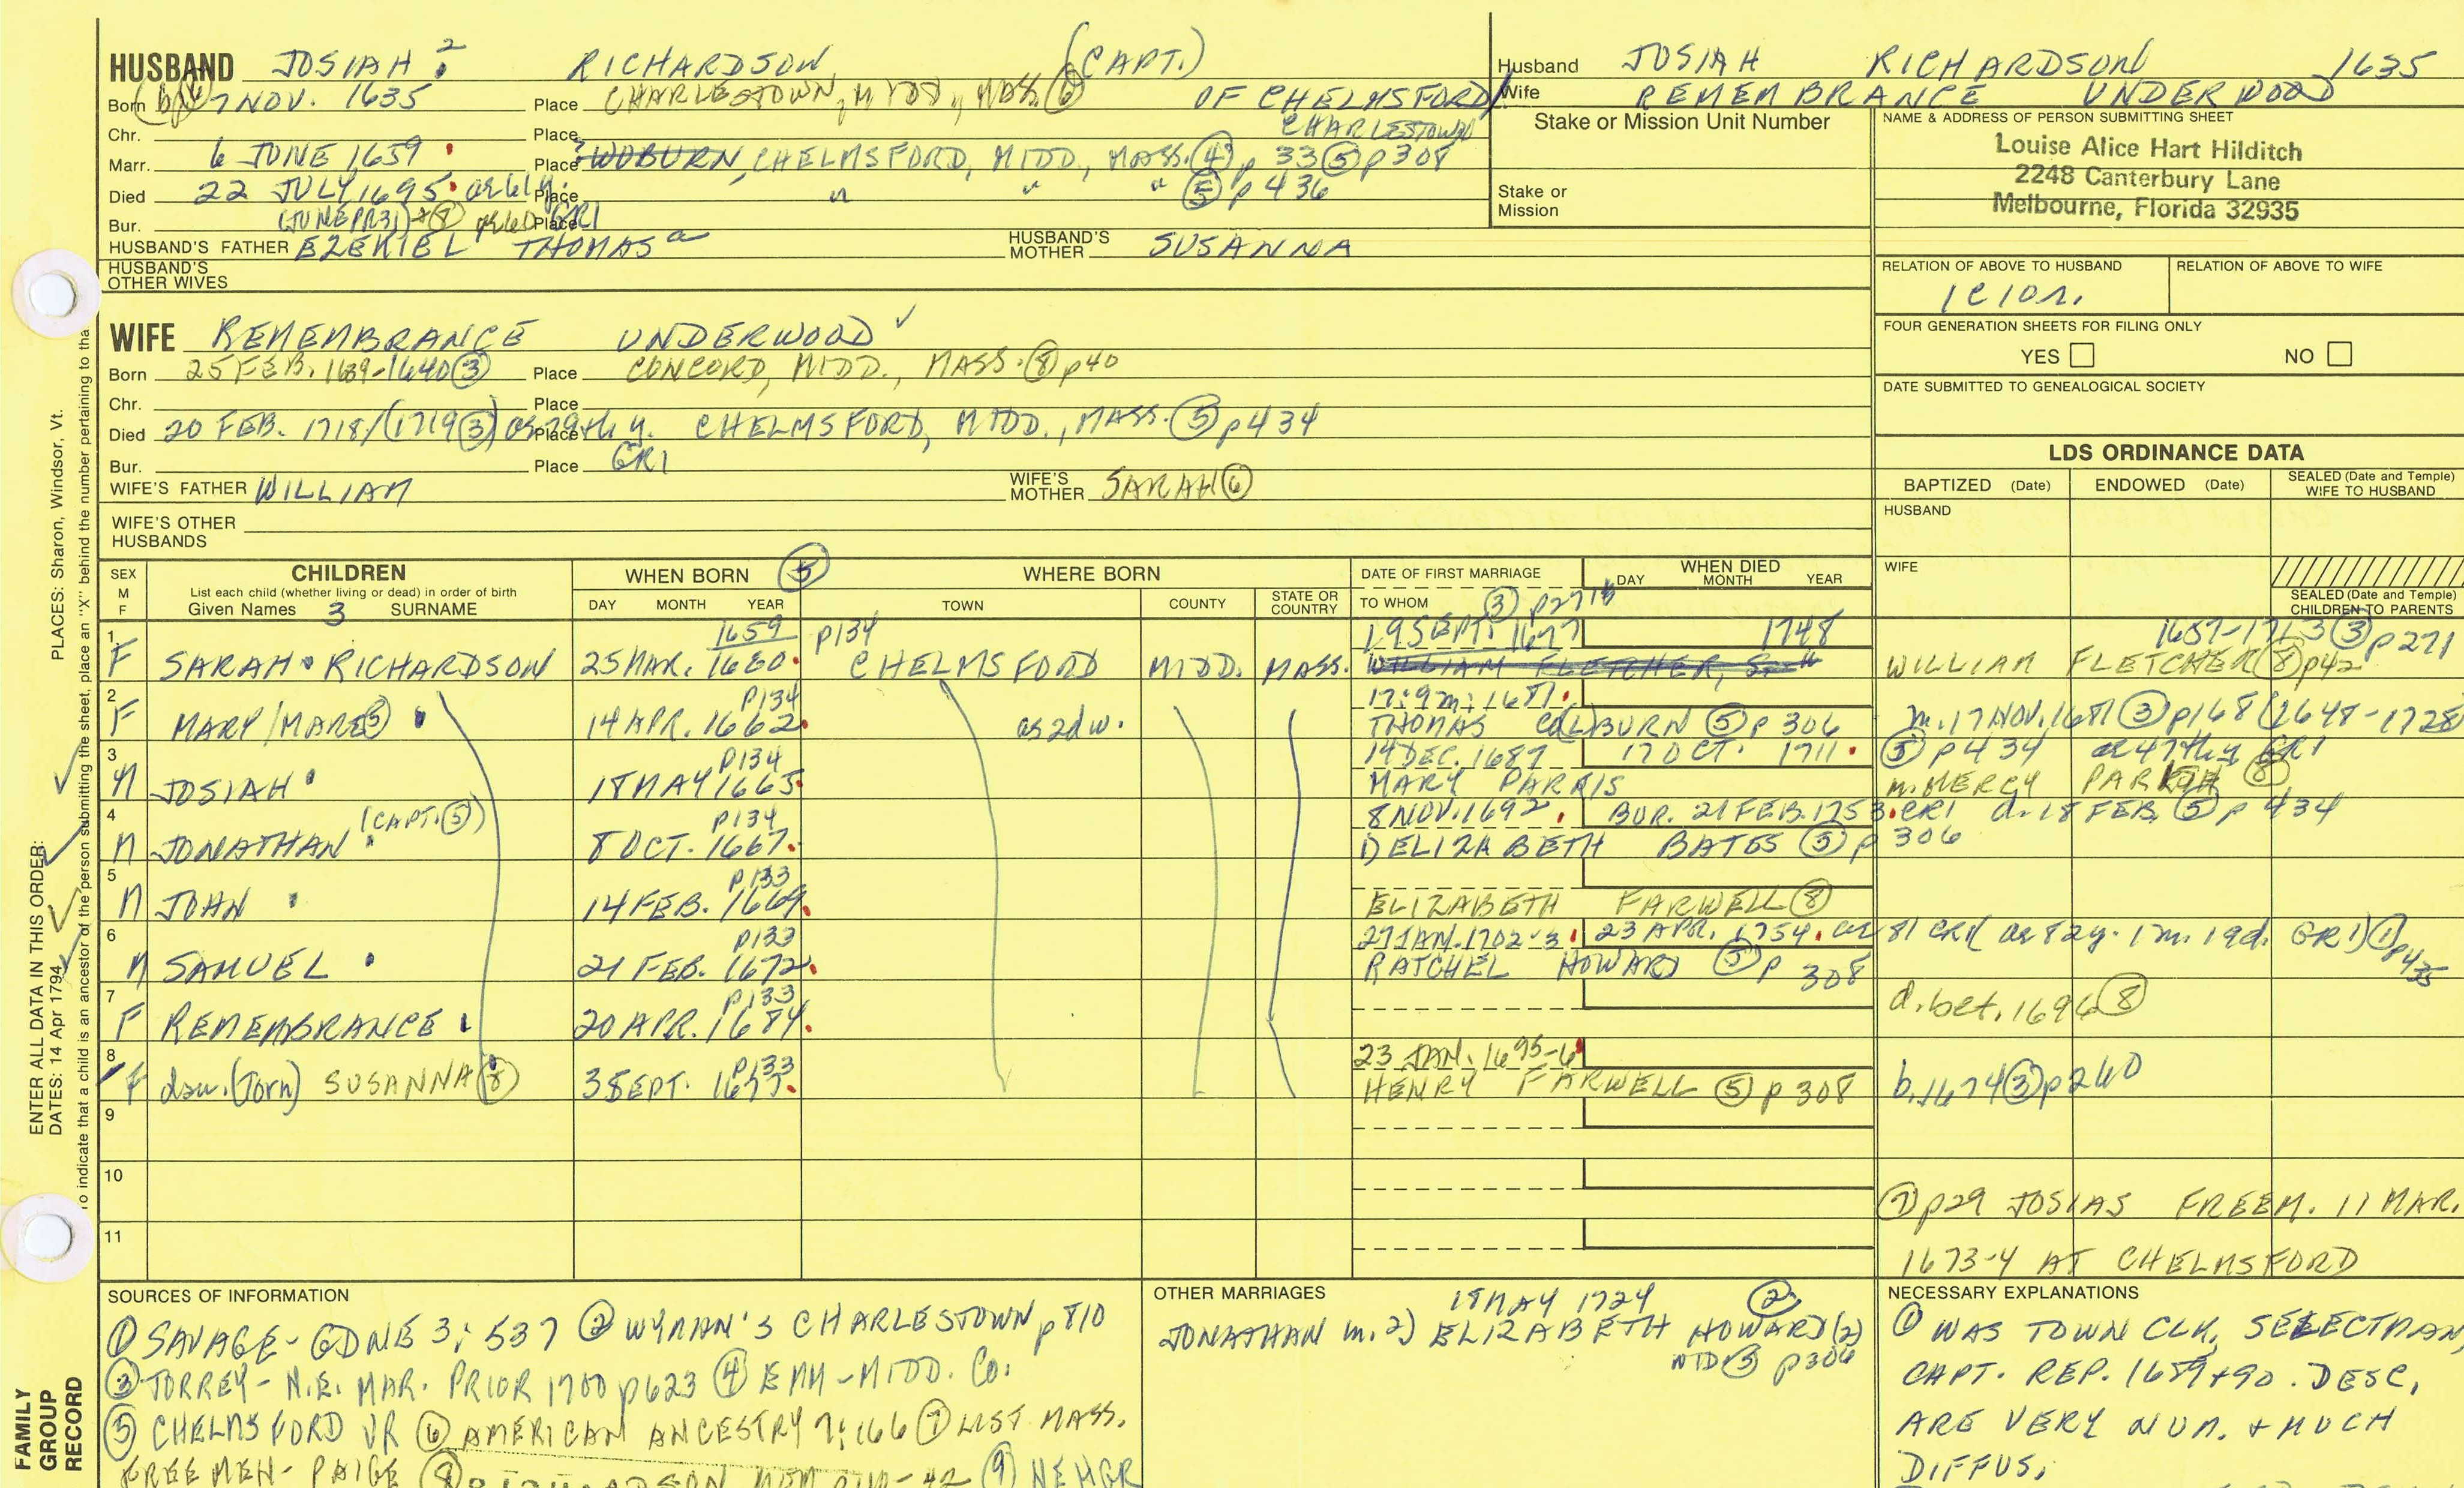 HUSBAND JOSIAH 2 RICHARDSON (CAPT.)
Born 7 NOV. 1635 Place CHARLESTOWN, MIDD., MASS. (6) OF CHELMSFORD/
CHARLESTOWN
Chr. Place
Marr. 6 JUNE 1659 Place WOBURN, CHELMSFORD, MIDD., MASS. (4) p 33 (5) p 308
Died 22 JULY 1695 Place " " " (5) p 436
Bur. Place GR1
HUSBAND'S FATHER EZEKIEL THOMAS HUSBAND'S MOTHER SUSANNA
HUSBAND'S OTHER WIVES
WIFE REMEMBRANCE UNDERWOOD
Born 25 FEB. 1639-1640 (3) Place CONCORD, MIDD., MASS. (8) p40
Chr. Place
Died 20 FEB. 1718/(1719(3)) Place CHELMSFORD, MIDD., MASS. (5) p434
Bur. Place GR1
WIFE'S FATHER WILLIAM WIFE'S MOTHER SARAH (6)
WIFE'S OTHER HUSBANDS
Husband JOSIAH RICHARDSON 1635
Wife REMEMBRANCE UNDERWOOD
Stake or Mission Unit Number
Stake or Mission
NAME & ADDRESS OF PERSON SUBMITTING SHEET
Louise Alice Hart Hilditch
2248 Canterbury Lane
Melbourne, Florida 32935
RELATION OF ABOVE TO HUSBAND RELATION OF ABOVE TO WIFE
1C10r.
FOUR GENERATION SHEETS FOR FILING ONLY
YES NO
DATE SUBMITTED TO GENEALOGICAL SOCIETY
LDS ORDINANCE DATA
BAPTIZED (Date) ENDOWED (Date) SEALED (Date and Temple) WIFE TO HUSBAND
HUSBAND
WIFE
SEALED (Date and Temple) CHILDREN TO PARENTS
SEX M F
CHILDREN
List each child (whether living or dead) in order of birth
Given Names 3 SURNAME
WHEN BORN (5)
DAY MONTH YEAR
WHERE BORN
TOWN COUNTY STATE OR COUNTRY
DATE OF FIRST MARRIAGE
TO WHOM (3) p271
WHEN DIED
DAY MONTH YEAR
1 1659 p134 19 SEPT. 1677 1748 1657-1713 (3) p271
F SARAH RICHARDSON 25 MAR. 1660. CHELMSFORD MIDD. MASS. WILLIAM FLETCHER, WILLIAM FLETCHER (8) p42
2 p134 17: 9m: 1681.
F MARY/MARE (3) 14 APR. 1662. as 2d w. THOMAS COLBURN (5) p 306 m. 17 NOV. 1681 (3) p168 (1648-1728)
3 p134 14 DEC. 1687 17 OCT. 1711. (5) p434 ae 47th y GR1
M JOSIAH 18 MAY 1665. MARY PARRIS m. MERCY (8)
4 (CAPT. (5)) p134 8 NOV. 1692. BUR. 21 FEB. 1753. CR1 d. 18 FEB. (5) p 434
M JONATHAN 8 OCT. 1667. 1) ELIZABETH BATES (5) p 306
5 p133
M JOHN 14 FEB. 1669. ELIZABETH FARWELL (8)
6 p133 27 JAN. 1702-3. 23 APR. 1754. ae 81 CR1 ae 82y. 1m. 19d. GR1 p435
M SAMUEL 21 FEB. 1672. RATCHEL HOWARD (5) p 308
7 p133
F REMEMBRANCE 20 APR. 1684. d. bet. 1696 (8)
8 p133 23 JAN. 1695-6
F dau. (Torn) SUSANNA (8) 3 SEPT. HENRY FARWELL (5) p 308 b. 1674 (3) p260
9
10
(7) p29 JOSIAS FREEM. 11 MAR.
11
1673-4 AT CHELMSFORD
SOURCES OF INFORMATION
(1) SAVAGE-GDNE 3: 537 (2) WYMAN'S CHARLESTOWN p 810
(3) TORREY- N.E. MAR. PRIOR 1700 p623 (4) EMH-MIDD. CO.
(5) CHELMSFORD VR (6) AMERICAN ANCESTRY 9:166 (7) LIST MASS.
FREEMEN- PAIGE (8) RICHARDSON MEM (9) NEHGR
OTHER MARRIAGES
18 MAY 1724 (2)
JONATHAN m. 2) ELIZABETH HOWARD (2)
p306
NECESSARY EXPLANATIONS
(1) WAS TOWN CLK, SELECTMAN,
CAPT. REP. 1689+90. DESC.
ARE VERY NUM. + MUCH
DIFFUS.
PLACES: Sharon, Windsor, Vt.
ENTER ALL DATA IN THIS ORDER:
DATES: 14 Apr 1794
To indicate that a child is an ancestor of the person submitting the sheet, place an "X" behind the number pertaining to tha
FAMILY GROUP RECORD